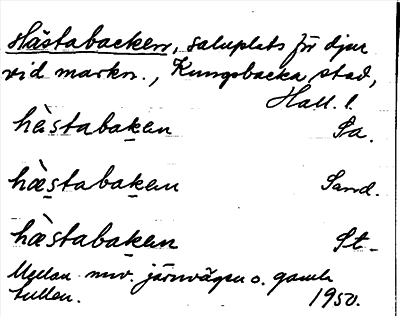 Hästabacken, saluplats för djur
vid markn., Kungsbacka stad,
Hall. l.
hæ̀stabaken Sa.
hæ̀stabaken Sand.
hæ̀stabaken St.
Mellan nuv. järnvägen o. gamla
tullen. 1950.